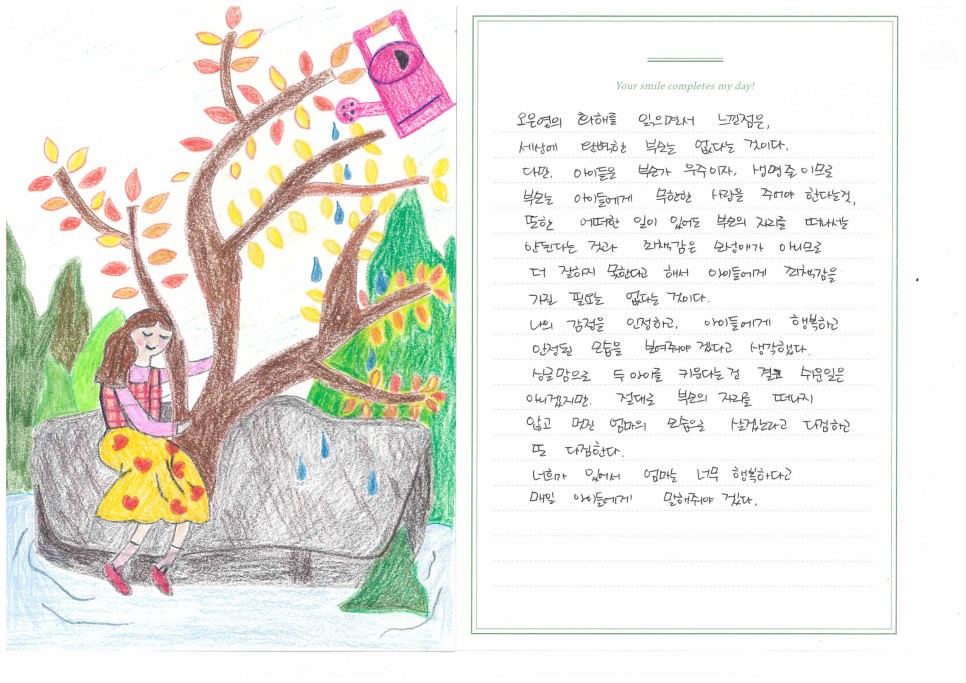 Your smile completes my day!
오은영의 화해를 읽으면서 느낀점은,
세상에 완벽한 부모는 없다는 것이다.
다만, 아이들은 부모가 우주이자, 생명줄 이므로
부모는 아이들에게 무한한 사랑을 주어야 한다는것,
또한 어떠한 일이 있어도 부모의 자리를 떠나서는
안된다는 것과 죄책감은 모성애가 아니므로
더 잘하지 못한다고 해서 아이들에게 죄책감을
가질 필요는 없다는 것이다.
나의 감정을 인정하고, 아이들에게 행복하고
안정된 모습을 보여줘야 겠다고 생각했다.
싱글맘으로 두 아이를 키운다는 건 결코 쉬운일은
아니겠지만, 절대로 부모의 자리를 떠나지
않고 멋진 엄마의 모습을 살겠노라고 다짐하고
또 다짐한다.
너희가 있어서 엄마는 너무 행복하다고
매일 아이들에게 말해줘야 겠다.